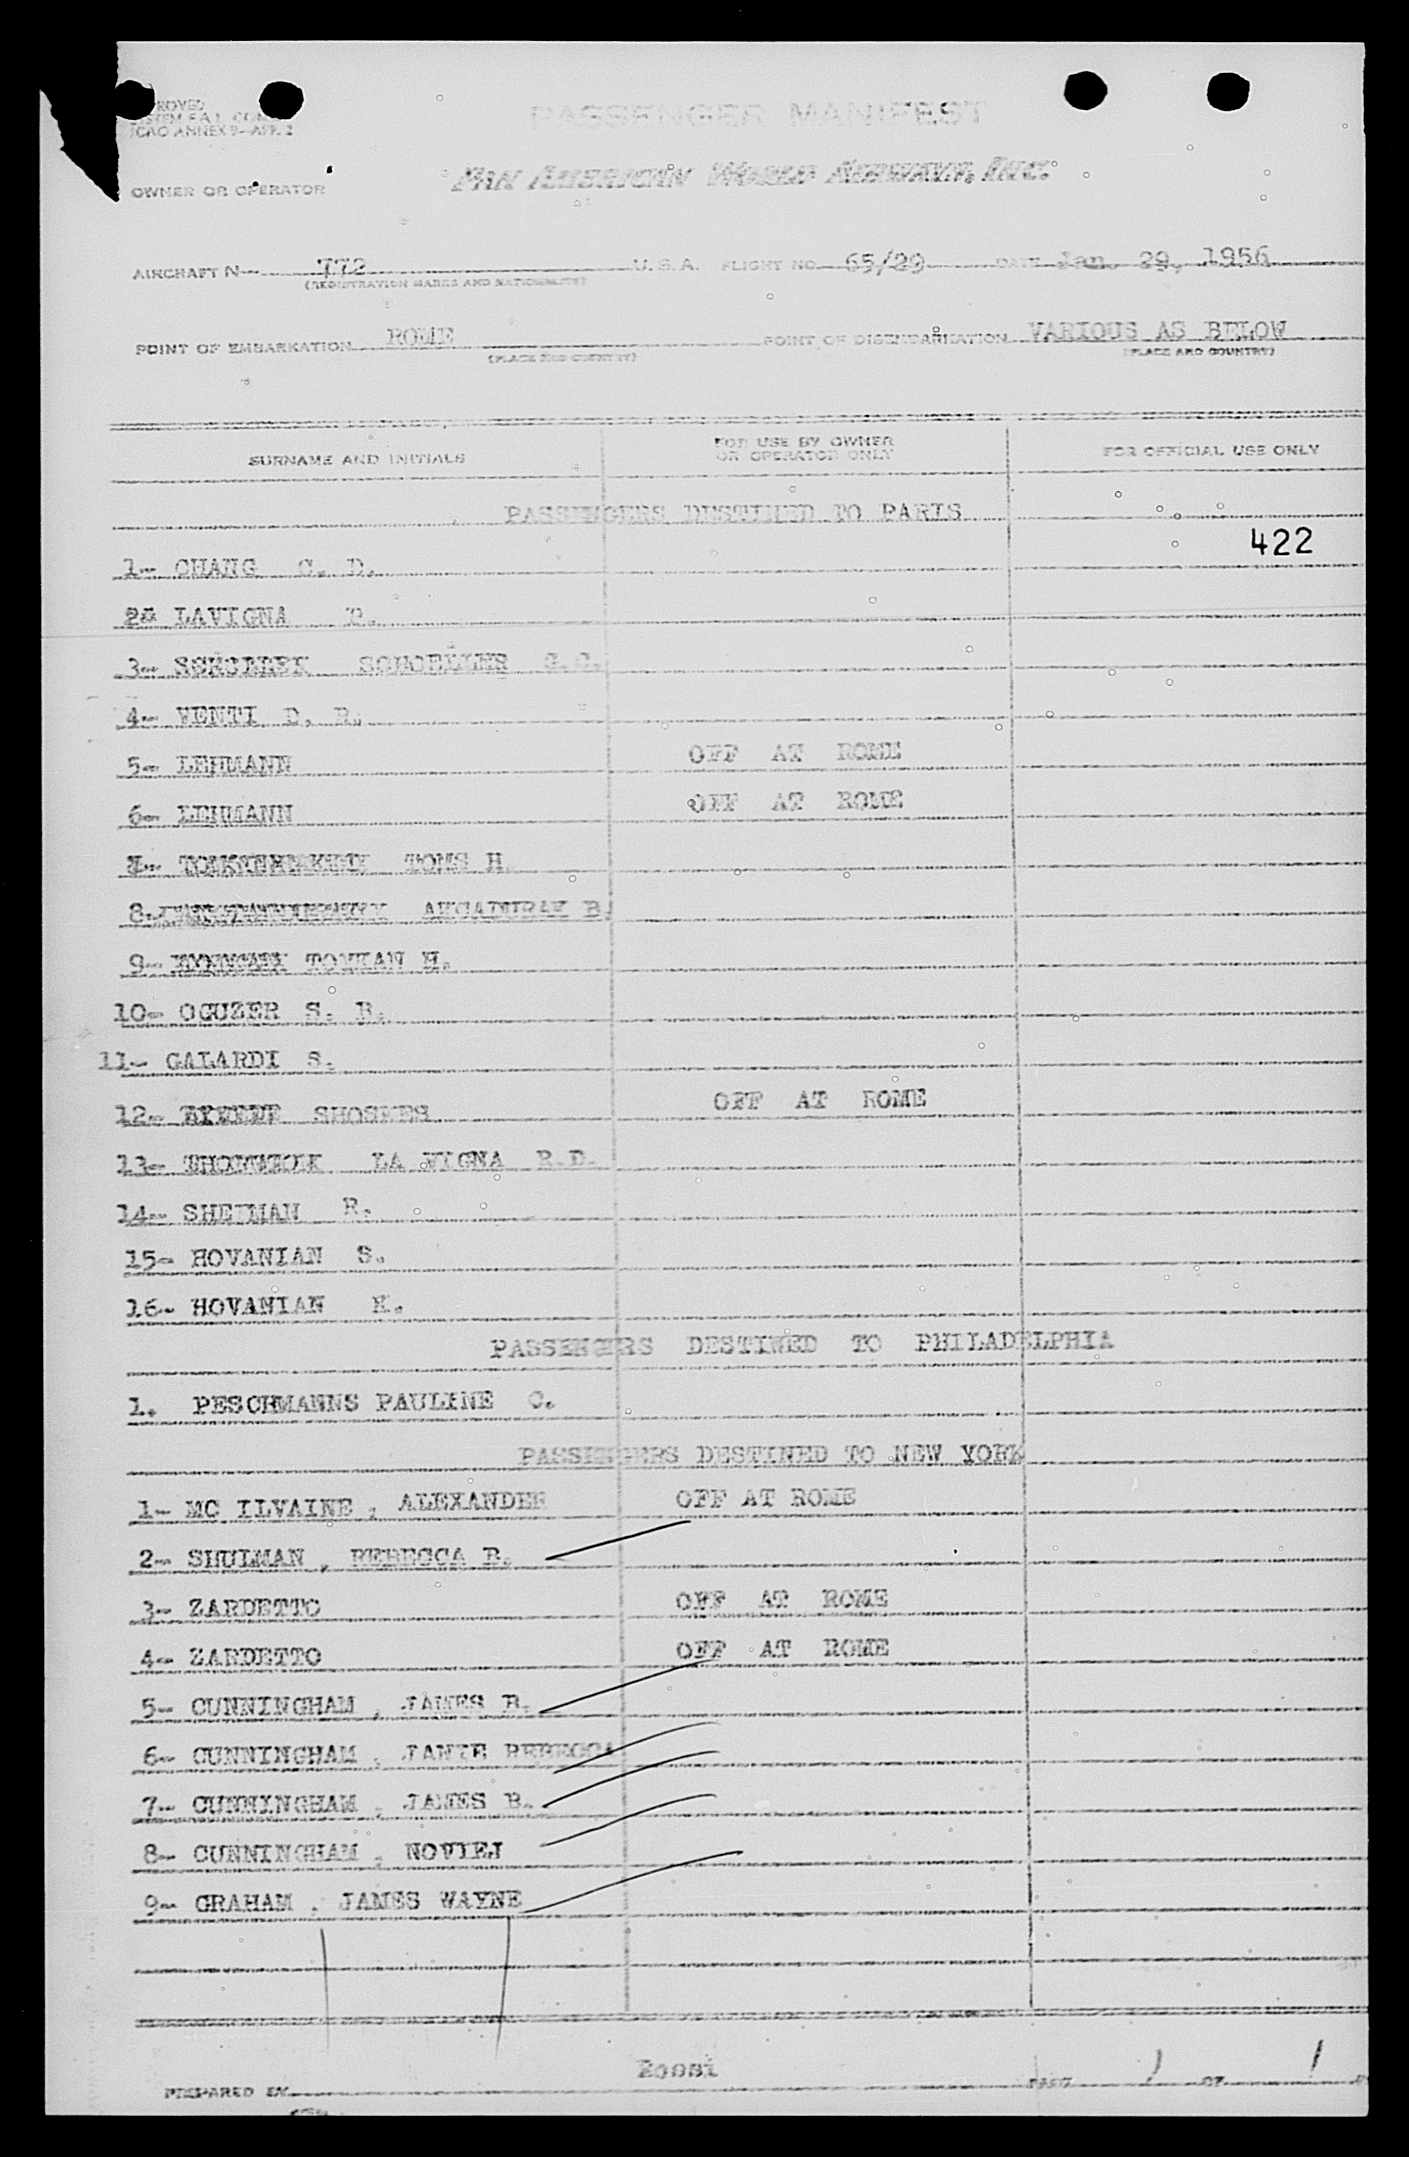 ROVED
SYSTEM F.A.L. COM
ICAO ANNEX 9-APP. 2
PASSENGER MANIFEST
OWNER OR OPERATOR PAN AMERICAN WORLD AIRWAYS, INC.
AIRCRAFT N- 772 U.S.A. FLIGHT NO. 65/29 DATE Jan. 29, 1956
(REGISTRATION MARKS AND NATIONALITY)
POINT OF EMBARKATION ROME POINT OF DISEMBARKATION VARIOUS AS BELOW
(PLACE AND COUNTRY) (PLACE AND COUNTRY)
SURNAME AND INITIALS FOR USE BY OWNER OR OPERATOR ONLY FOR OFFICIAL USE ONLY
PASSENGERS DESTINED TO PARIS
422
1- CHANG C. D.
2- LAVIGNA
3- SCHOELLER G.C.
4- VENTI D. R.
5- LEHMANN OFF AT ROME
6- LEHMANN OFF AT ROME
TOMS H.
8- B.
9- H.
10- OGUZER S. B.
11- GALARDI S.
12- OFF AT ROME
13- LA VIGNA R.D.
14- R.
15- HOVANIAN S.
16- HOVANIAN
PASSENGERS DESTINED TO PHILADELPHIA
1. PESCHMANNS PAULINE C.
PASSENGERS DESTINED TO NEW YORK
1- MC ILVAINE , ALEXANDER OFF AT ROME
2- SHULMAN , REBECCA B.
3- ZARDETTO OFF AT ROME
4- ZARDETTO OFF AT ROME
5- CUNNINGHAM , JAMES B.
6- CUNNINGHAM , JANIE REBECCA
7- CUNNINGHAM , JAMES B.
8- CUNNINGHAM , NOVIEJ
9- GRAHAM , JAMES WAYNE
PREPARED BY Rossi PAGE 1 OF 1